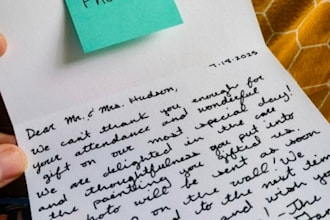 PHO
7.18.2025
Dear Mr. & Mrs. Hudson,
We can't thank you enough for
your attendance and wonderful
gift on our most special day!
We are delighted in the care
and thoughtfulness you put into
the painting you gifted us.
photo will be sent as soon
on the wall! We
to the next time
and wish you
! The